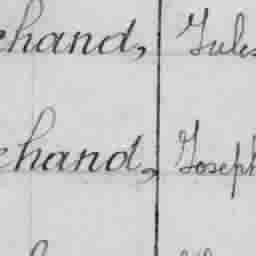 chand, Jules
chand, Joseph